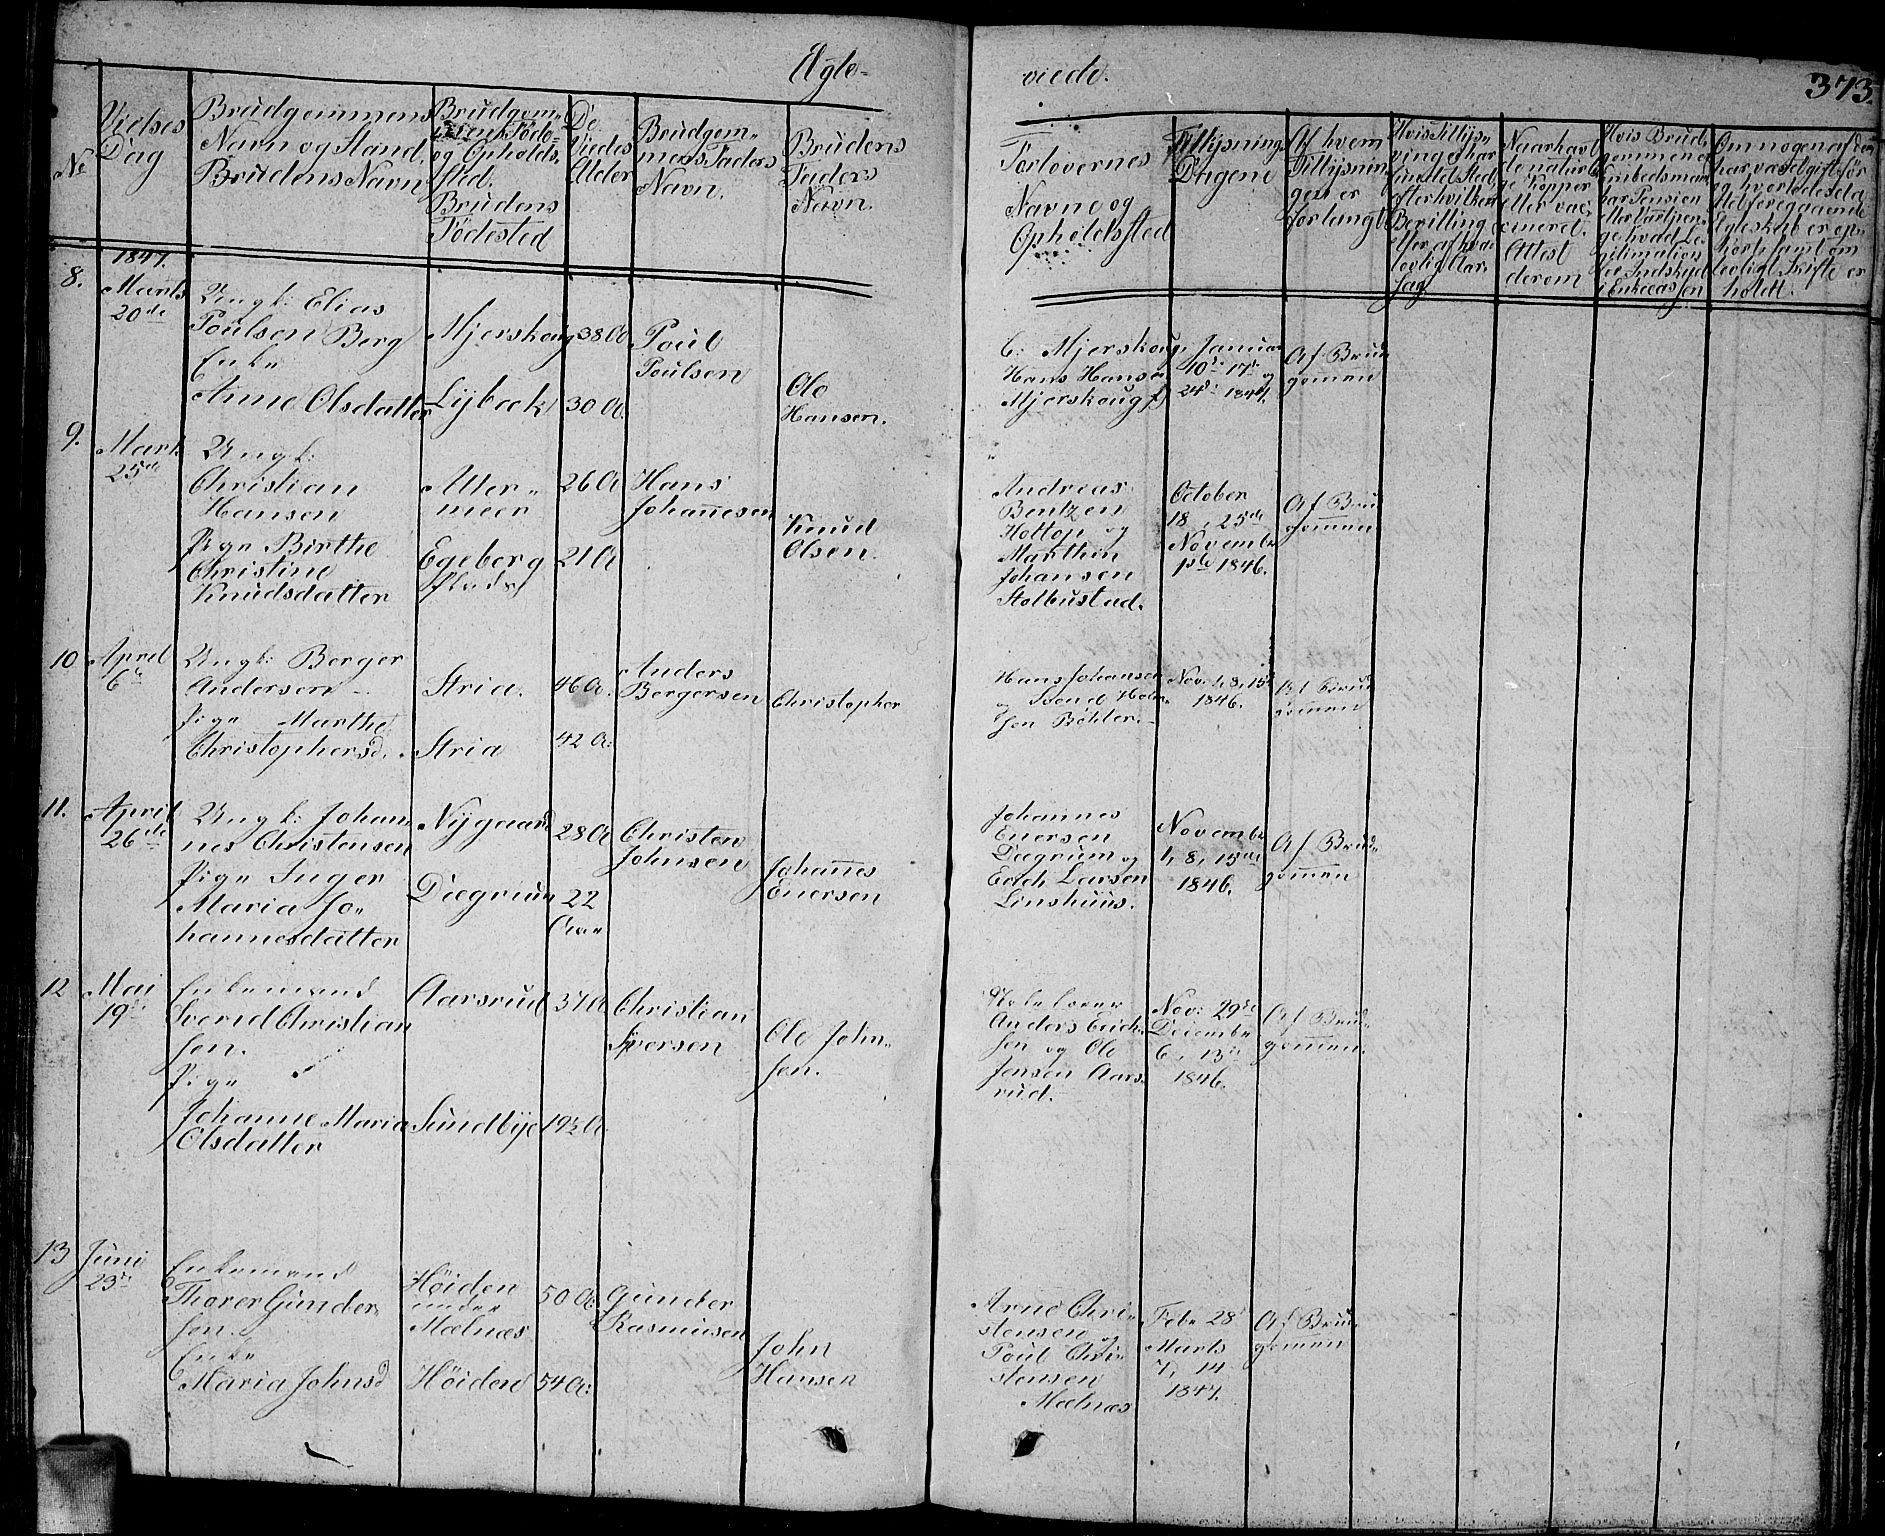 Ægte-
viede.
373.
No
Vielses
Dag
Brudgommens
Navn og Stand,
Brudens Navn
Brudgom-
mens Føde-
og Opholds-
sted.
Brudens
Fødested
De
Viedes
Alder
Brudgom-
mens Faders
Navn.
Brudens
Faders
Navn.
Forlovernes
Navne og
Opholdsted
Tillysnings
Dagene
Af hvem
Tillysnin-
gen er
forlangt
Hvis Tillys-
ning ei har
fundet Sted,
efter hvilken
Bevilling
eller af hvad
lovlig Aar-
sag
Naar havt
de natur-
lige Kopper
eller vac-
cineret.
Attest
derom
Hvis Brud-
gommen er
Embedsmand
har Pension
gen hvad Le-
gitimation
for Indskud
i Enkecassen
Om nogen af dem
har varet gift før
og hvorledes det
foregaaende
Ægteskab er op-
hørt samt om
lovligt Skifte er
holdt.
1847.
8.
Marts
20de
Ungk: Elias
Poulsen Berg
Enke
Anne Olsdatter
Mjerskoug
Lybeck
38 A
30 A.
Poul
Poulsen
Ole
Hansen.
C: Mjerskoug,
Hans Hansen
Mjerskoug
Januar
10de 17de og
24de 1847.
Af Brud-
gomen
9.
Marts
25de
Ungk:
Christian
Hansen
Pige Birthe
Christine
Knudsdatter
Atter-
meer
Egeberg
Plads
26 A
21 A
Hans
Johannesen
Knud
Olsen.
Andreas
Bentzen
Holtop og
Marthin
Johansen
Stolbustad.
October
18, 25de
November
1ste 1846.
Af Brud
gomen
10
April
6te
Ungk: Berger
Andersen
Pige Marthe
Christophersd.
Stria.
Stria
46 A.
42 A:
Anders
Bergersen
Christopher
Hans Johansen
og Svend Halvor-
sen Böhler.
Nov. 1, 8, 15de
1846.
Af Brud
gomen
11.
April
26de
Ungk: Johan-
nes Christensen
Pige Inger
Maria Jo-
hannesdatter
Nygaard
Dægrum
28 A
22
Aar
Christen
Johnsen
Johannes
Enersen
Johannes
Enersen
Dægrum og
Erich Larsen
Linshuus.
Novembr
1, 8, 15de
1846.
Af Brud-
gomen
12
Mai
19de
Enkemand
Svend Christian
sen.
Pige
Johanne Maria
Olsdatter
Aarsrud
Sundbye
37 A
19½ A
Christian
Sversen
Ole John-
sen.
Anders Erich-
sen og Ole
Jensen Aars-
rud.
Nov: 29de
Decembr
6, 13de
1846.
Af Brud-
gomen.
13
Juni
23de
Enkemand
Thorer Gunder-
sen.
Enke
Maria Johnsd
Höiden
under
Mælnæs
Höiden
50 A:
54 A:
Gunder
Rasmusen
John
Hansen
Arne Chri-
stensen og
Poul Chri-
stensen
Mælnæs
Febr 28
Marts
7, 14
1847.
Af Brud-
gomen